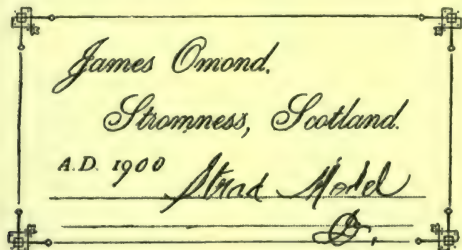 James Omond.
Stromness, Scotland.
A.D. 1900 Strad Model